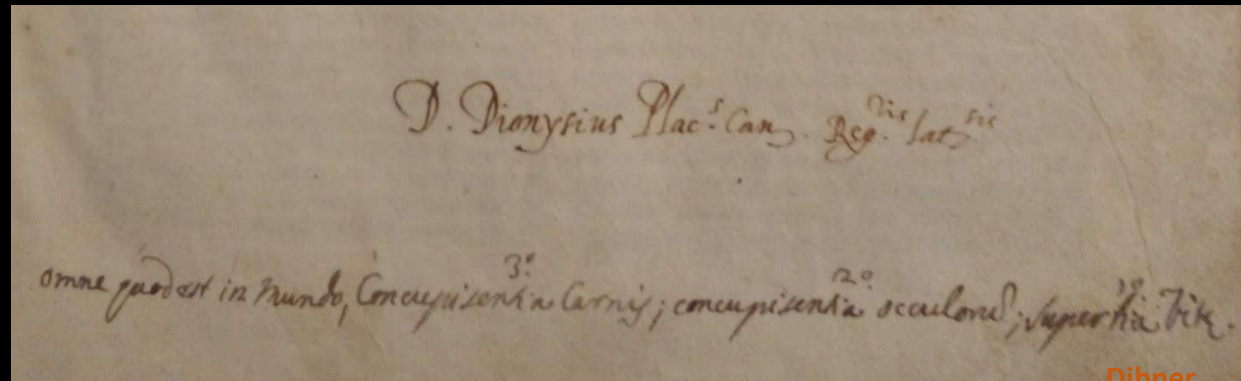 D. Dionysius Plac.s Can. Reg.ris Lat.sis
3.o 2.o 1.o
omne quod est in Mundo, Concupisentia Carnis; concupisentia occulorum; superbia Vitę.
Dibner